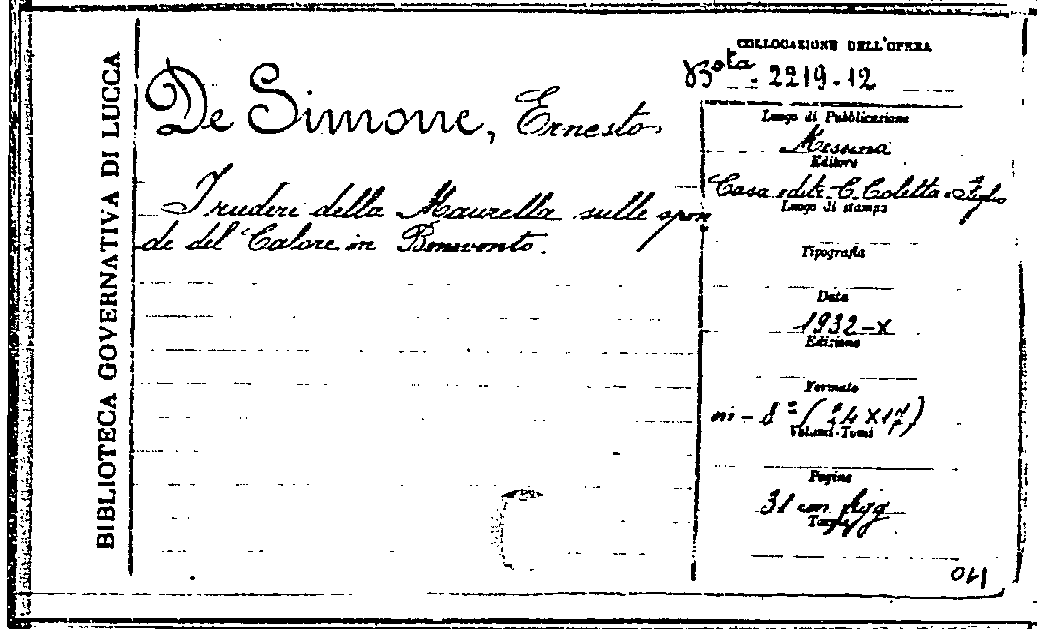 BIBLIOTECA GOVERNATIVA DI LUCCA
De Simone, Ernesto
I ruderi della Maurella sulle spon
de del Calore in Benevento.
COLLOCAZIONE DELL'OPERA
Bta. 2219.12
Luogo di Pubblicazione
Messina
Editore
Casa edit. C. Coletta e Figlio
Luogo di stampa
Tipografia
Data
1932-X
Edizione
Formato
in-8° (24X17)
Volumi-Tomi
Pagine
31 con figg
Tavole